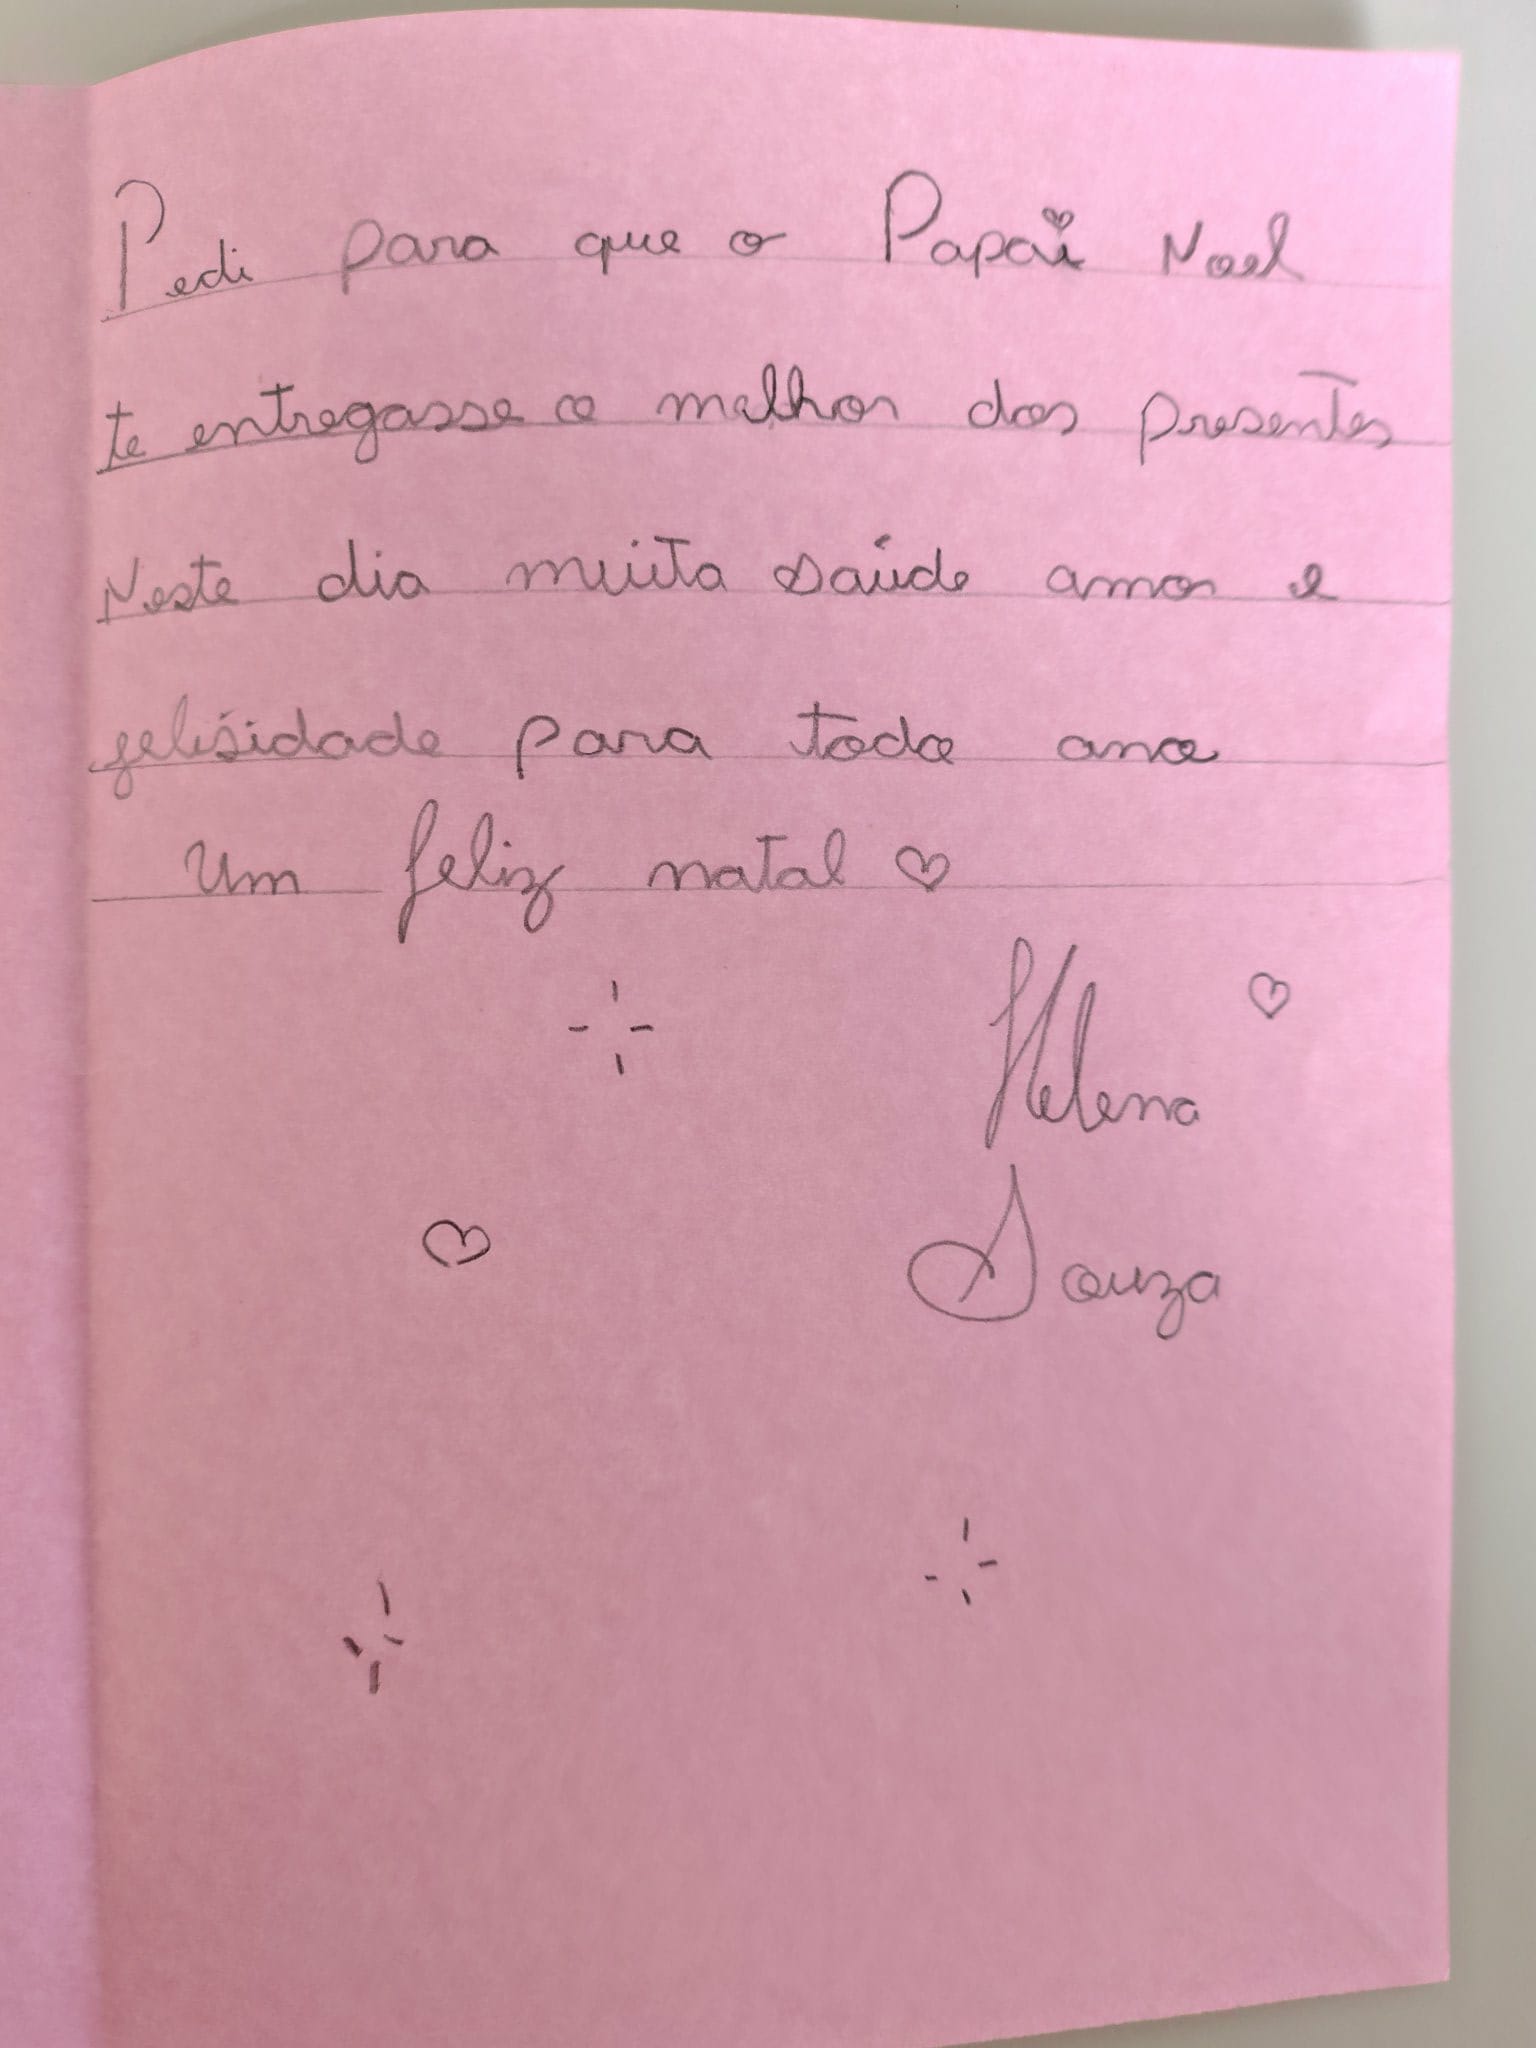 Pedi para que o Papai Noel
te entregasse o melhor dos presentes
Neste dia muita saúde amor e
felisidade para todo ano
Um feliz natal ♡
Helena ♡
Souza